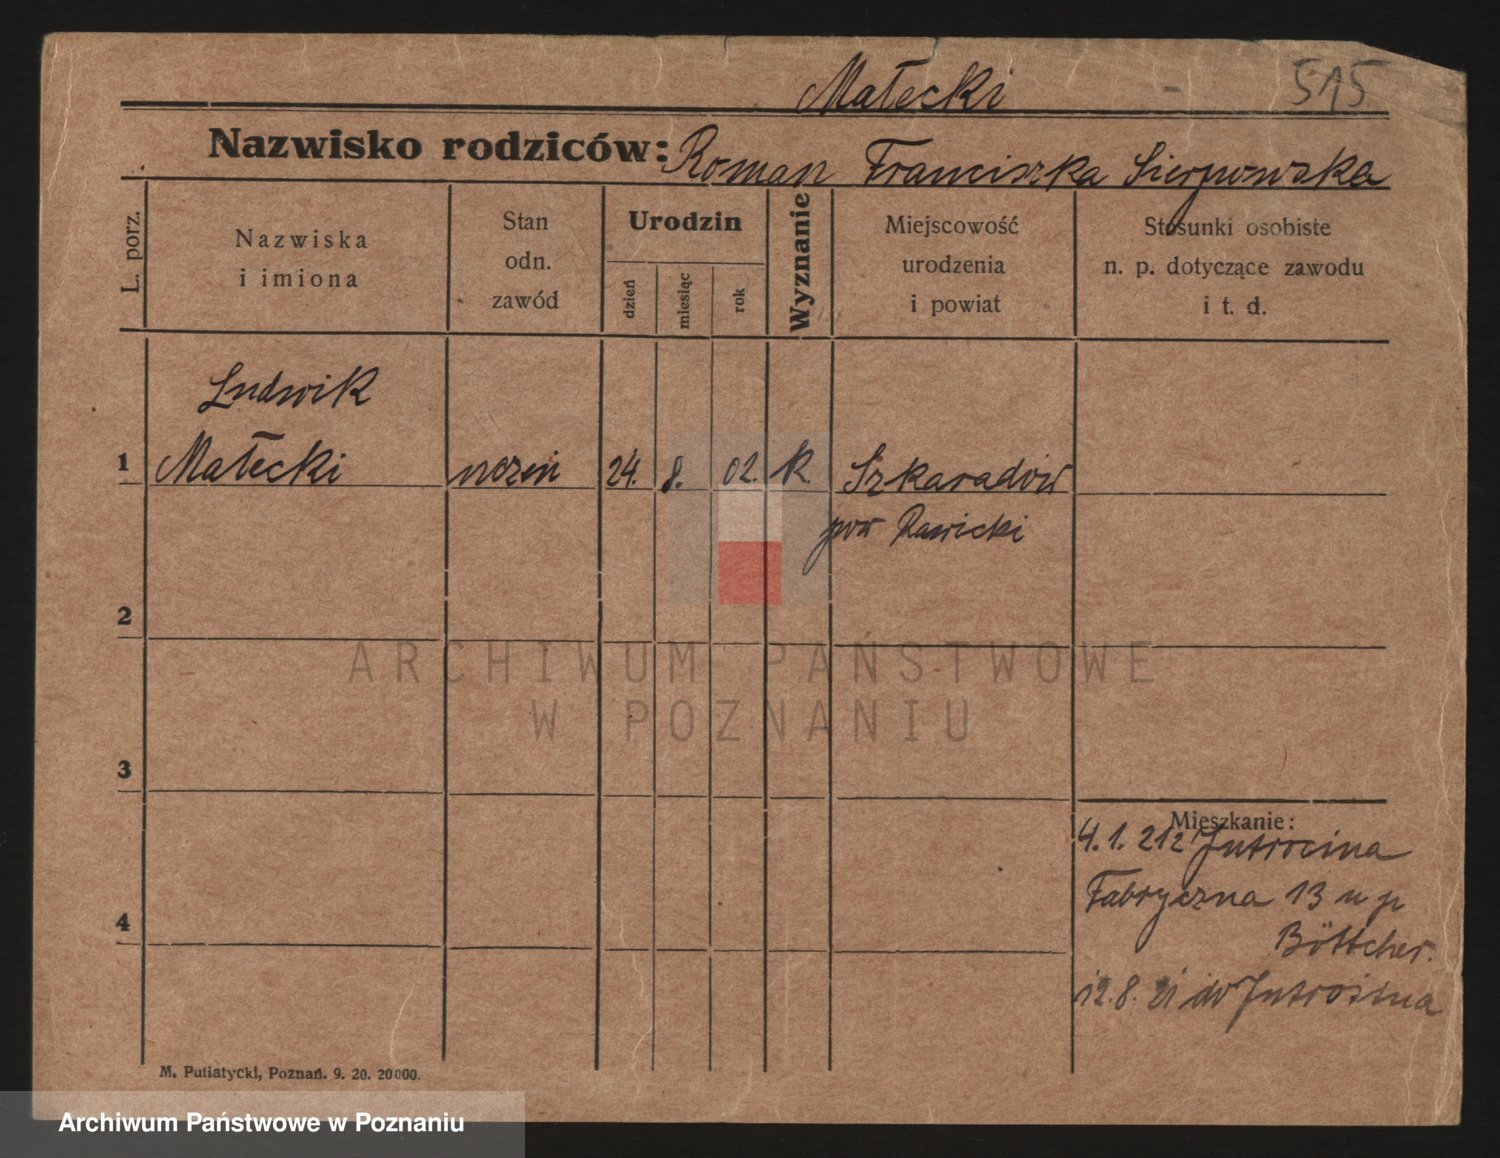 Małecki - 515
Nazwisko rodziców: Roman Franciszka Sierpowska
L. porz.
Nazwiska
i imiona
Stan
odn.
zawód
Urodzin
dzień
miesiąc
rok
Wyznanie
Miejscowość
urodzenia
i powiat
Stosunki osobiste
n. p. dotyczące zawodu
i t. d.
Ludwik
1 Małecki uczeń 24. 8. 02. k. Szkaradow
pow Rawicki
2
3
4
Mieszkanie:
4.1.21 z Jutrocina
Fabryczna 13 u p
Böttcher.
12.8.21 do Jutrosina
M. Putiatycki, Poznań. 9. 20. 20000.
ARCHIWUM PAŃSTWOWE
W POZNANIU
Archiwum Państwowe w Poznaniu